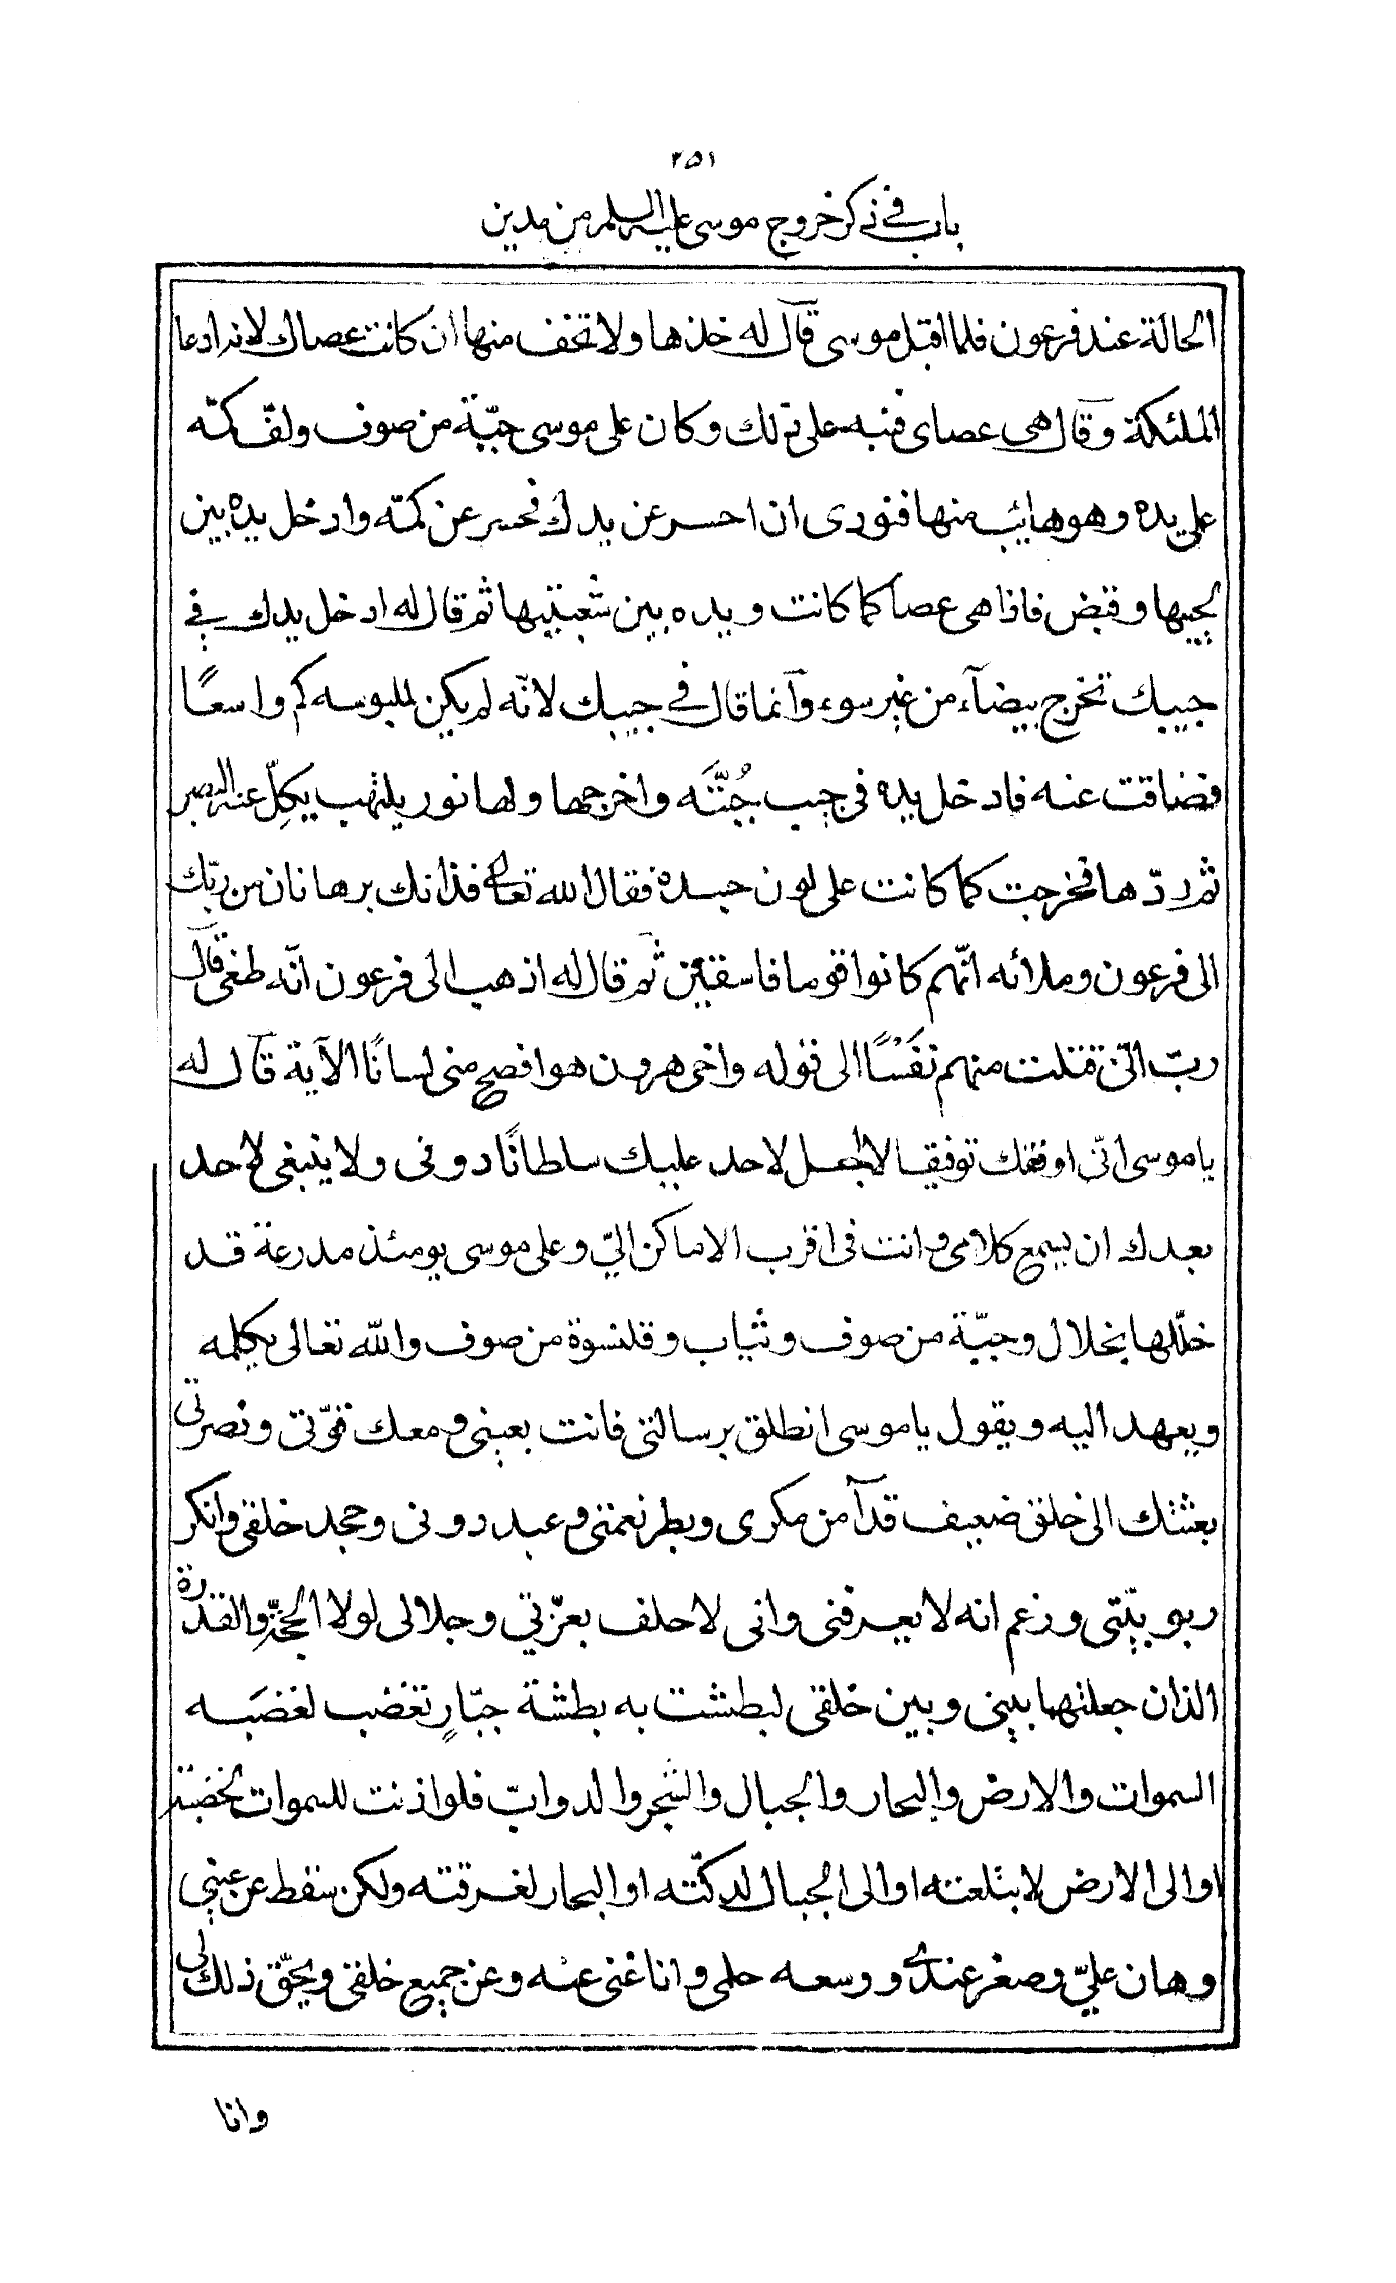 ٢٥١
باب في ذكر خروج موسى عليه السلم من مدين
الحالة عند فرعون فلما اقبل موسى قال له خذها ولا تخف منها ان كانت عصاك لانه ادعا
الملئكة وقال هي عصاى فنبه على ذلك وكان على موسى جبّة من صوف ولفّ كمّه
على يده وهو هائب منها فنودى ان احسر عن يدك فحسر عن كمّه وادخل يده بين
لحييها وقبض فاذا هى عصا كما كانت ويده بين شعبتيها ثم قال له ادخل يدك في
جيبك تخرج بيضآء من غير سوء وآنما قال في جيبك لانّه لم يكن لملبوسه كم واسعًا
فضاقت عنه فادخل يده في جيب جُبَّته واخرجها ولها نور يلتهب يكلّ عنه البصر
ثم ردّها فخرجت كما كانت على لون جسده فقال الله تعالى فذانك برهانان من ربّك
الى فرعون وملائه انّهم كانوا قوما فاسقين ثم قال له اذهب الى فرعون انّه طغى قال
ربّ انّى قتلت منهم نَفْسًا الى قوله واخى هرون هو افصح منى لسانًا الآية قال له
ياموسى انّى اوفقك توفيقا لا اجعل لاحد عليك سلطانًا دونى ولا ينبغى لاحد
بعدك ان يسمع كلامى وانت فى اقرب الاماكن اليّ وعلى موسى يومئذ مدرعة قد
خلّلها بخلال وجبّة من صوف وثياب وقلنسوة من صوف والله تعالى يكلمه
ويعهد اليه ويقول ياموسى انطلق برسالتى فانت بعينى ومعك قوّتى ونصرتى
بعثتك الى خلق ضعيف قد آمن مكرى وبطر نعمتى وعبد دونى وجحد خلقى وانكر
ربوبيّتى وزعم انه لا يعرفنى وانى لاحلف بعزّتي وجلالى لولا الحجّة والقدرة
الذان جعلتهما بينى وبين خلقى لبطشت به بطشة جبّارٍ تغضب لغضَبه
السموات والارض والبحار والجبال والشجر والدوابّ فلو اذنت للسموات لخضبته
او الى الارض لابتلعته او الى الجبال لدكّته او البحار لغرقته ولكن سقط عن عينى
وهان عليّ وصغر عندى ووسعه حلمى وانا غنى عنه وعن جميع خلقى ويحقّ ذلك لى
وانا